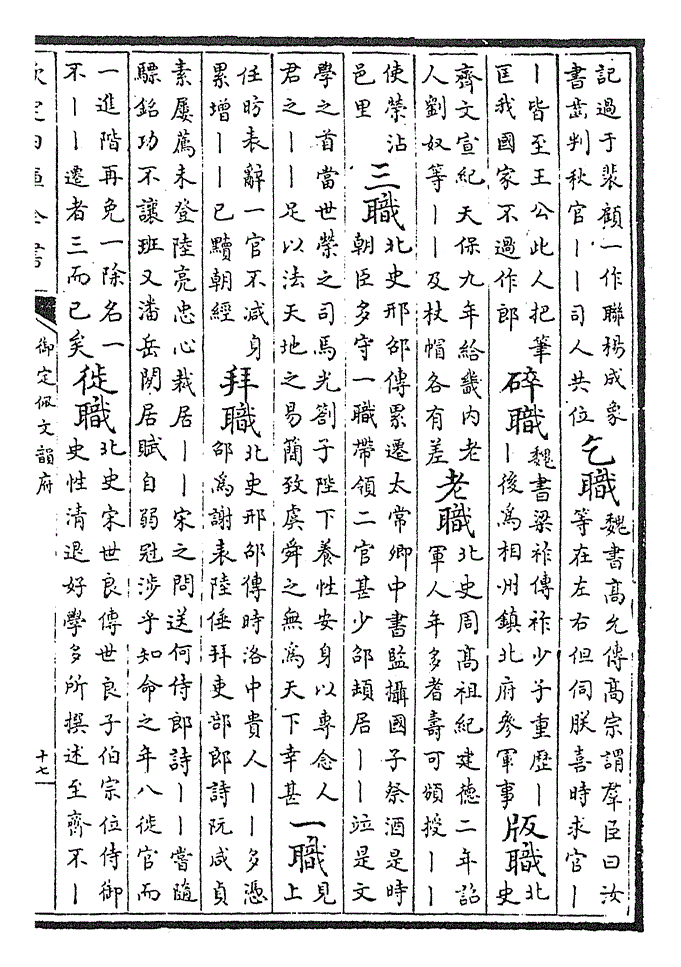 記過于裴顧一作聯楊成象
書啚判秋官丨丨司人共位
乞職
魏書高允傳高宗謂羣臣曰汝
等在左右但伺朕喜時求官丨
丨皆至王公此人把筆
匡我國家不過作郎
碎職
魏書梁祚傳祚少子重歷丨
丨後為相州鎮北府參軍事
版職
北
史
齊文宣紀天保九年給畿内老
人劉奴等丨丨及杖帽各有差
老職
北史周髙祖紀建德二年詔
軍人年多耆壽可頒授丨丨
使榮沾
邑里
三職
北史邢邵傳累遷太常卿中書監攝國子祭酒是時
朝臣多守一職帶領二官甚少邵頓居丨丨竝是文
學之首當世榮之司馬光劄子陛下養性安身以專念人
君之丨丨足以法天地之易簡致虞舜之無為天下幸甚
一職
見
上
任昉表辭一官不减身
累增丨丨已黷朝經
拜職
北史邢邵傳時洛中貴人丨丨多憑
邵為謝表陸倕拜吏部郎詩阮咸貞
素屢薦未登陸亮忠心裁居丨丨宋之問送何侍郎詩丨丨嘗隨
驃銘功不讓班又潘岳閒居賦自弱冠涉乎知命之年八徙官而
一進階再免一除名一
不丨丨遷者三而已矣
徙職
北史宋世良傳世良子伯宗位侍御
史性清退好學多所撰述至齊不丨
欽定四庫全書
御定佩文韻府
十七